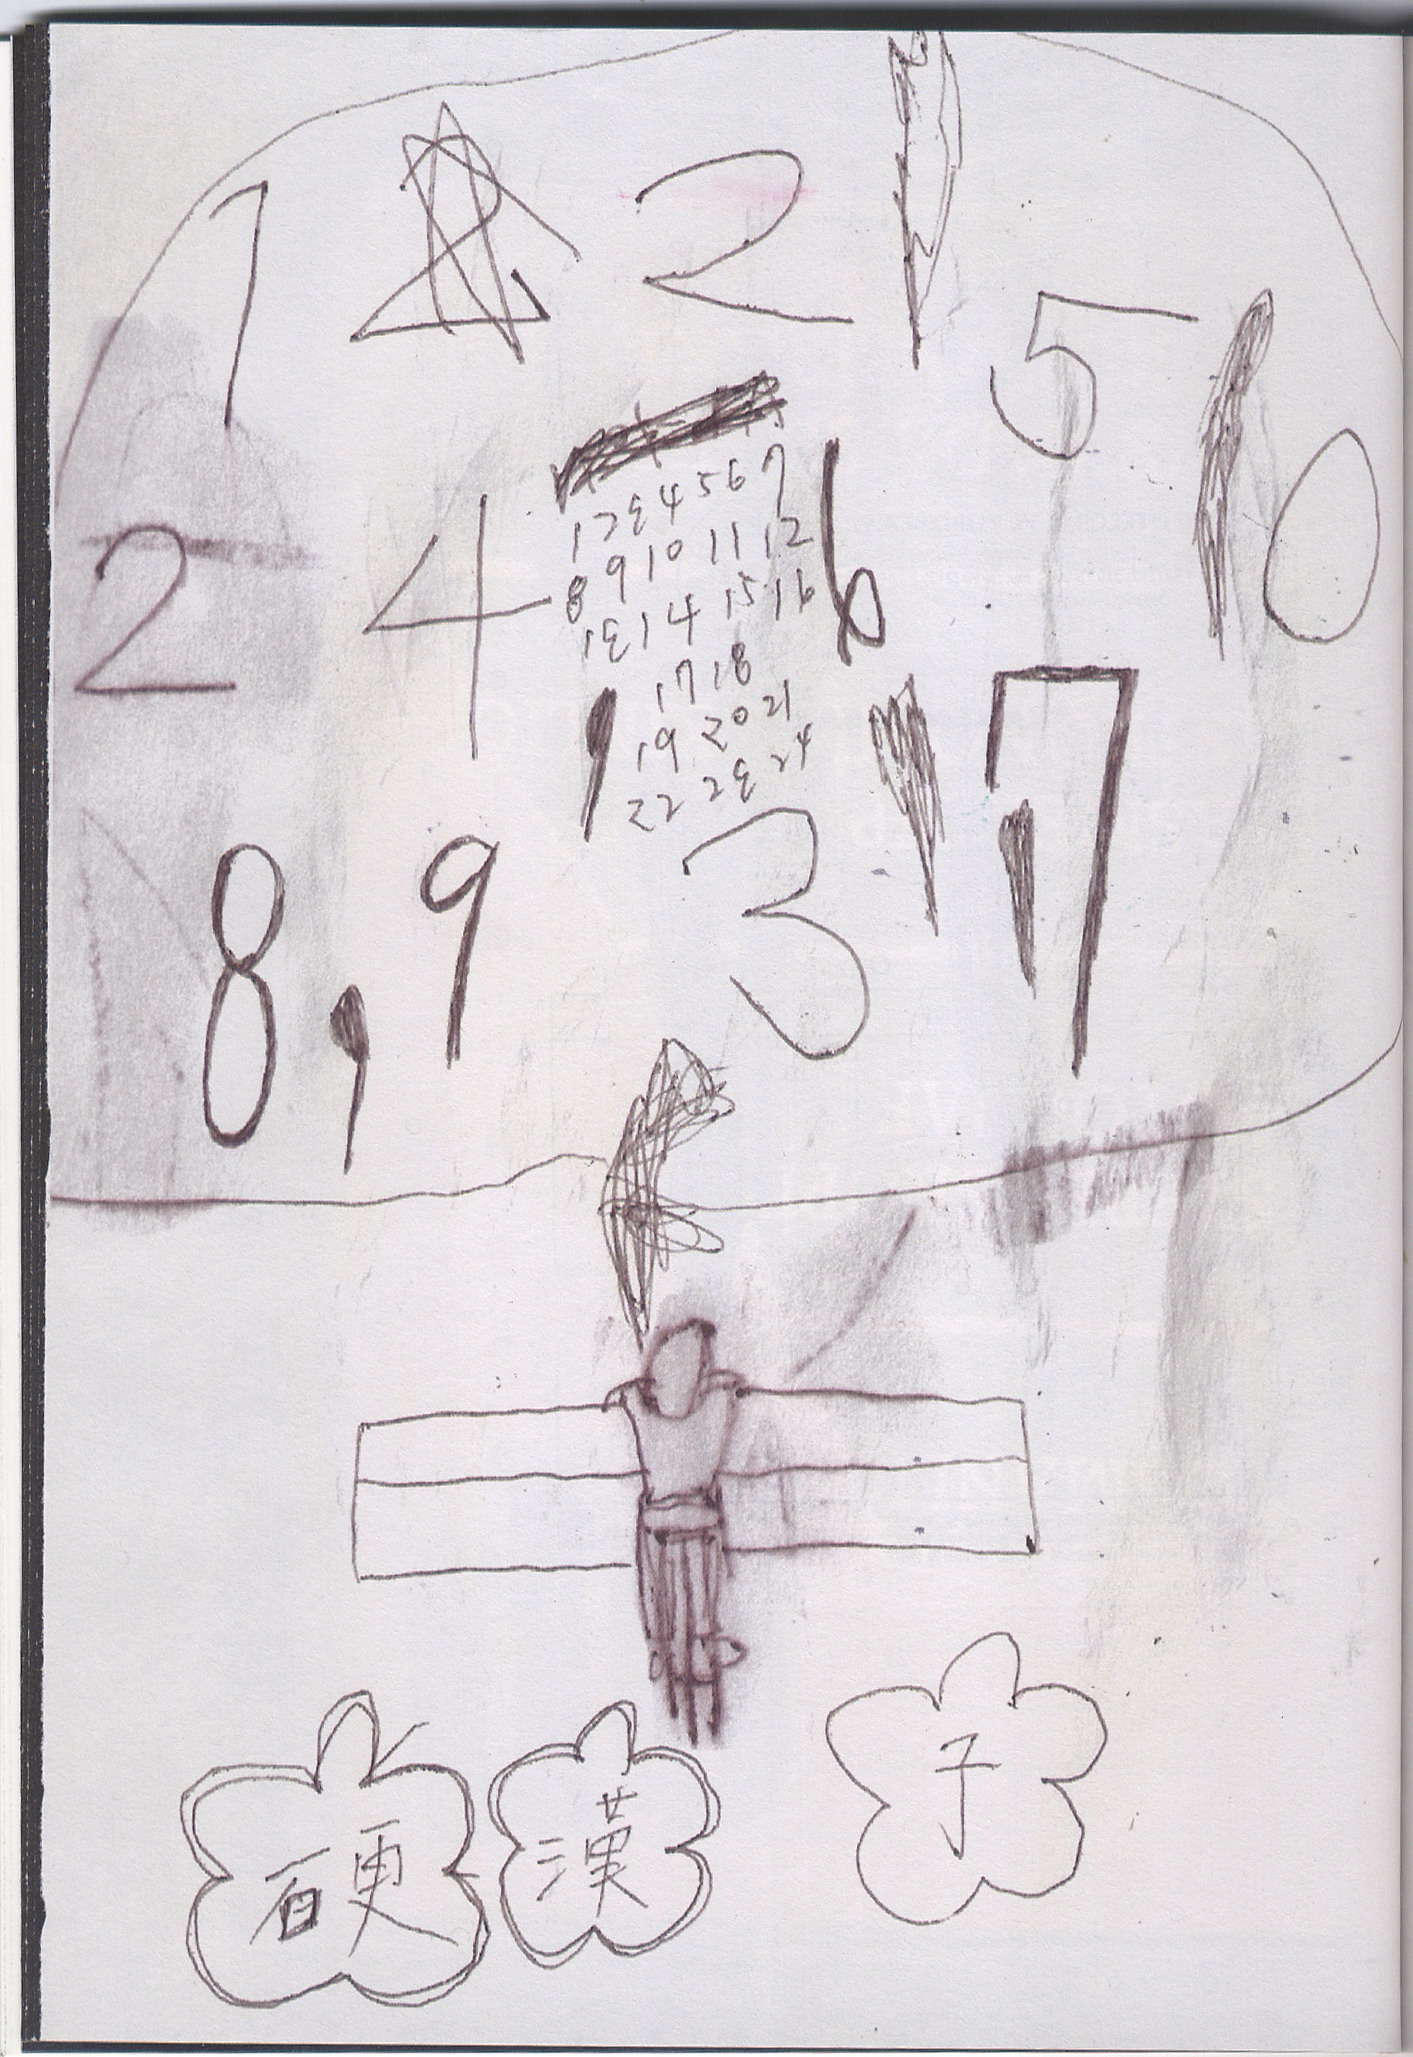 1 2 , 5 , 0
1 2 3 4 5 6 7
8 9 10 11 12
13 14 15 16
17 18
19 20 21
22 23 24
2 4 , 6 , 7
8 , 9 3 ,
硬 漢 子